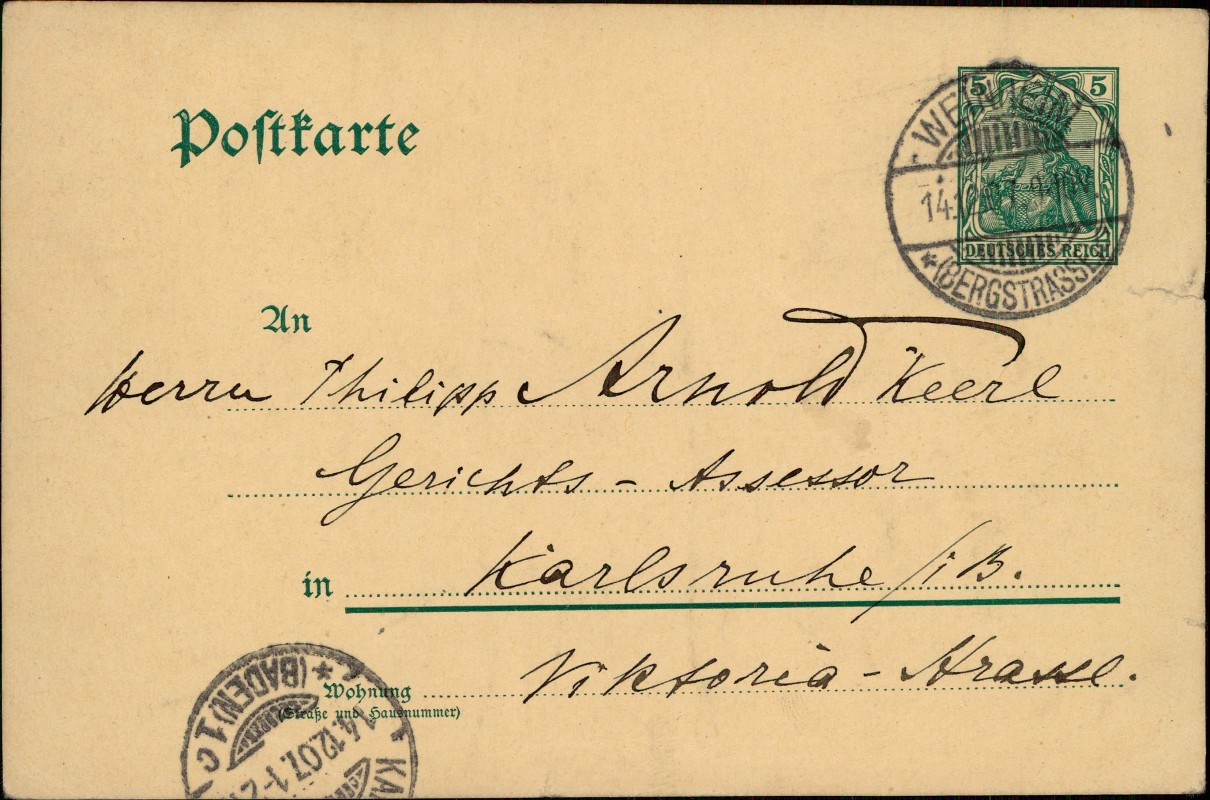 Postkarte
5 5
DEUTSCHES REICH
WEINHEIM
14.12.07
*(BERGSTRASSE
An
Herrn Philipp Arnold Keerl
Gerichts - Assessor
in Karlsruhe / i B.
Wohnung Viktoria - Strasse.
(Straße und Hausnummer)
*(BADEN) 1 c
14.12.07. 1-2
KA